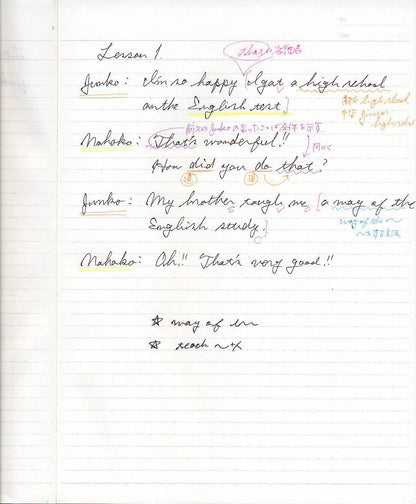 Lesson 1.
Junko: I'm so happy I gat a high school
on the English test.
高校 high school
中学 Junior
high school
Nahoko: That's wonderful!!
How did you do that?
Junko: My brother tough me a way of the
English study.
way of the ~
Nahoko: Oh!! That's very good!!
☆ way of
☆ teach ~ + x